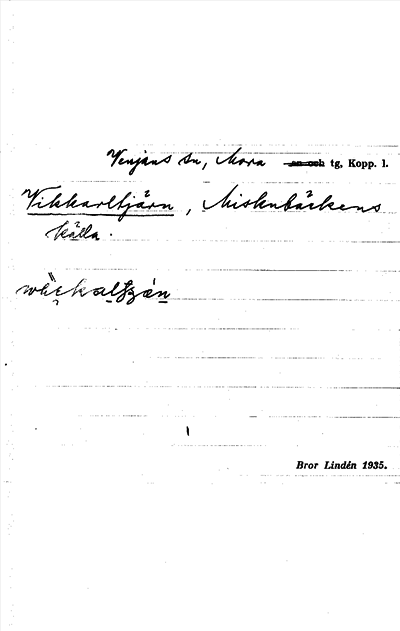 Venjans sn, Mora sn och tg, Kopp. l.
Vikkarltjärn, Miskubäckens
källa.
Bror Lindén 1935.